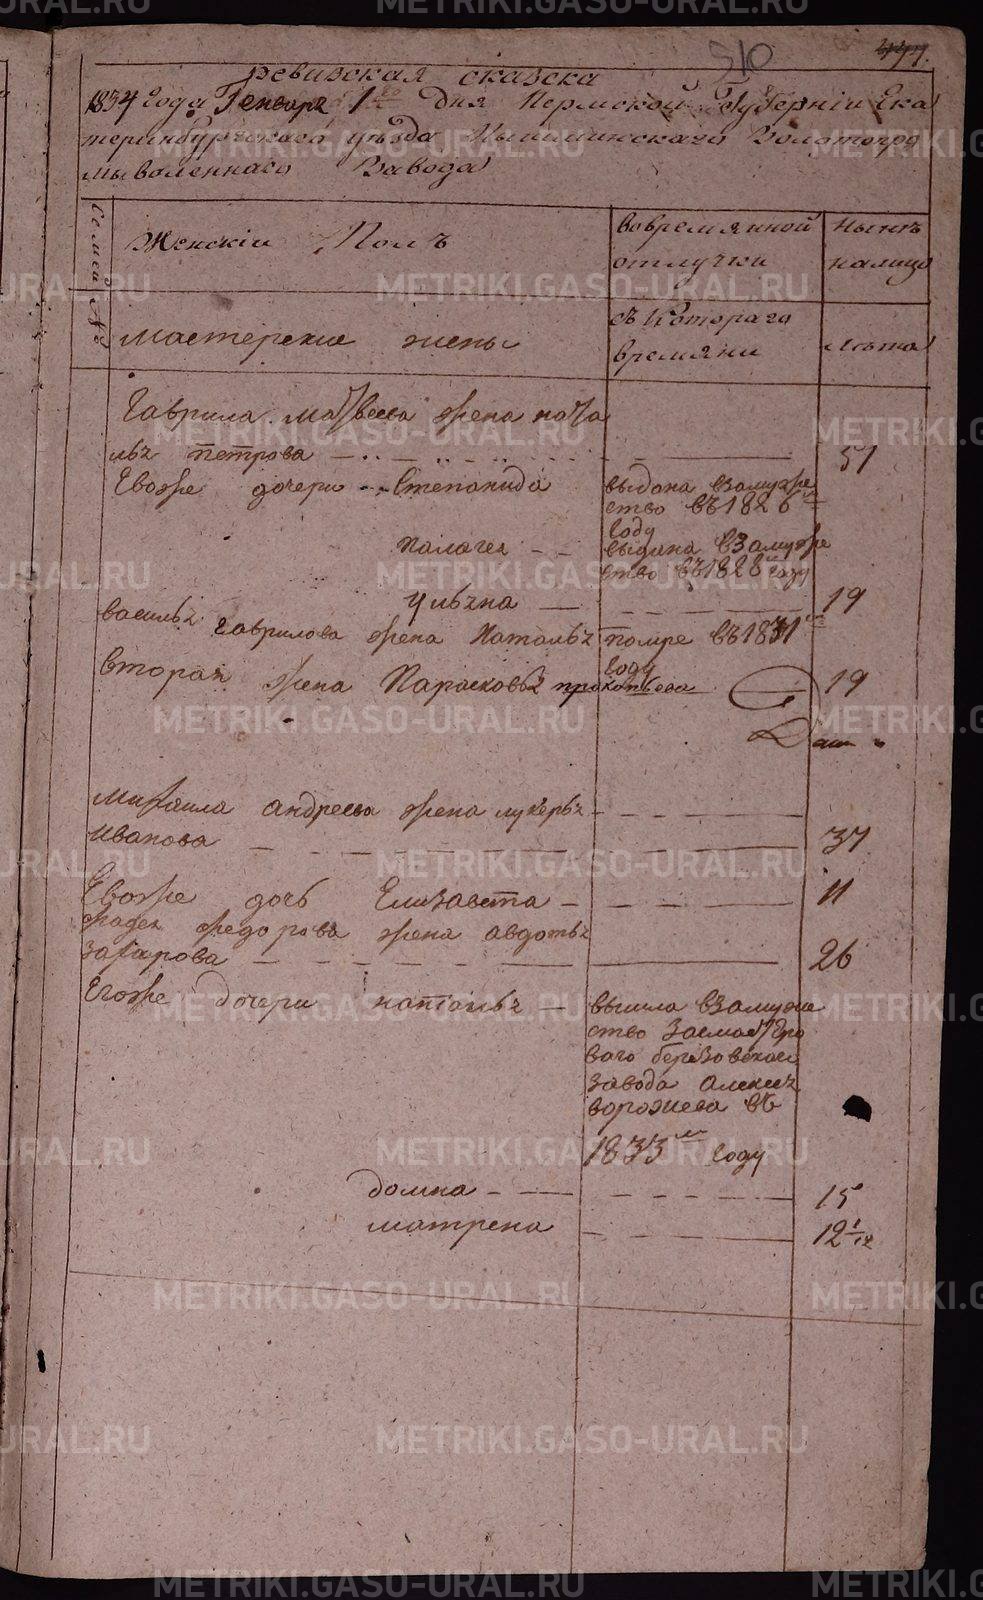 510
ревизская сказска
1834 года Генваря 1го дня Пермской Губернiи Ека
теринбургскаго уѣзда Пышминскаго Золотопро
мываленнаго Завода
Семей №
Женскiй Полъ
вовремянной отлучки
Нынѣ налицо
мастерскiе жены
съ Котораго времяни
лѣта
Гаврила матвеева жена ната
льѣ петрова
51
Евоже дочери Степанида
выдана взамуже
ство въ 1826м
году
палагея
выдана взамуже
ство въ 1828м году
ульяна
19
василья Гаврилова жена Наталья
помре въ 1831м
году
вторая жена Парасковья прокопьева
19
михаила андреева жена лукерья
Иванова
37
Евоже дочь Елизавета
11
федорова жена авдотья
захарова
26
Егоже дочери наталья
вышла взамуже
ство замастеро
ваго березовскаго
завода алексея
ворожева въ
1833м году
домна
15
матрена
12 1/12
METRIKI.GASO-URAL.RU